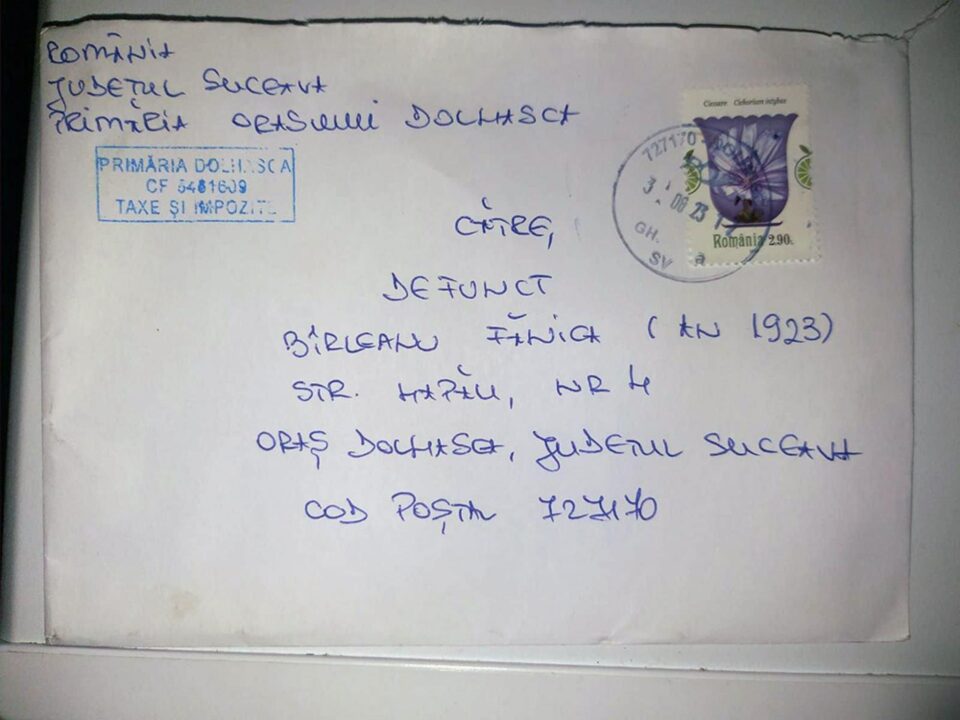 ROMÂNIA
JUDEȚUL SUCEAVA
PRIMĂRIA ORASULUI DOLHASCA
PRIMĂRIA DOLHASCA
CF 5461609
TAXE ȘI IMPOZITE
Cicoare Cichorium intybus
727170
08 23
GH.
SV
a
România 2.90
CĂTRE,
DEFUNCT
BÎRLEANU FĂNICA (AN 1923)
STR. HAPĂU, NR 4
ORAȘ DOLHASCA, JUDEȚUL SUCEAVA
COD POȘTAL 727170